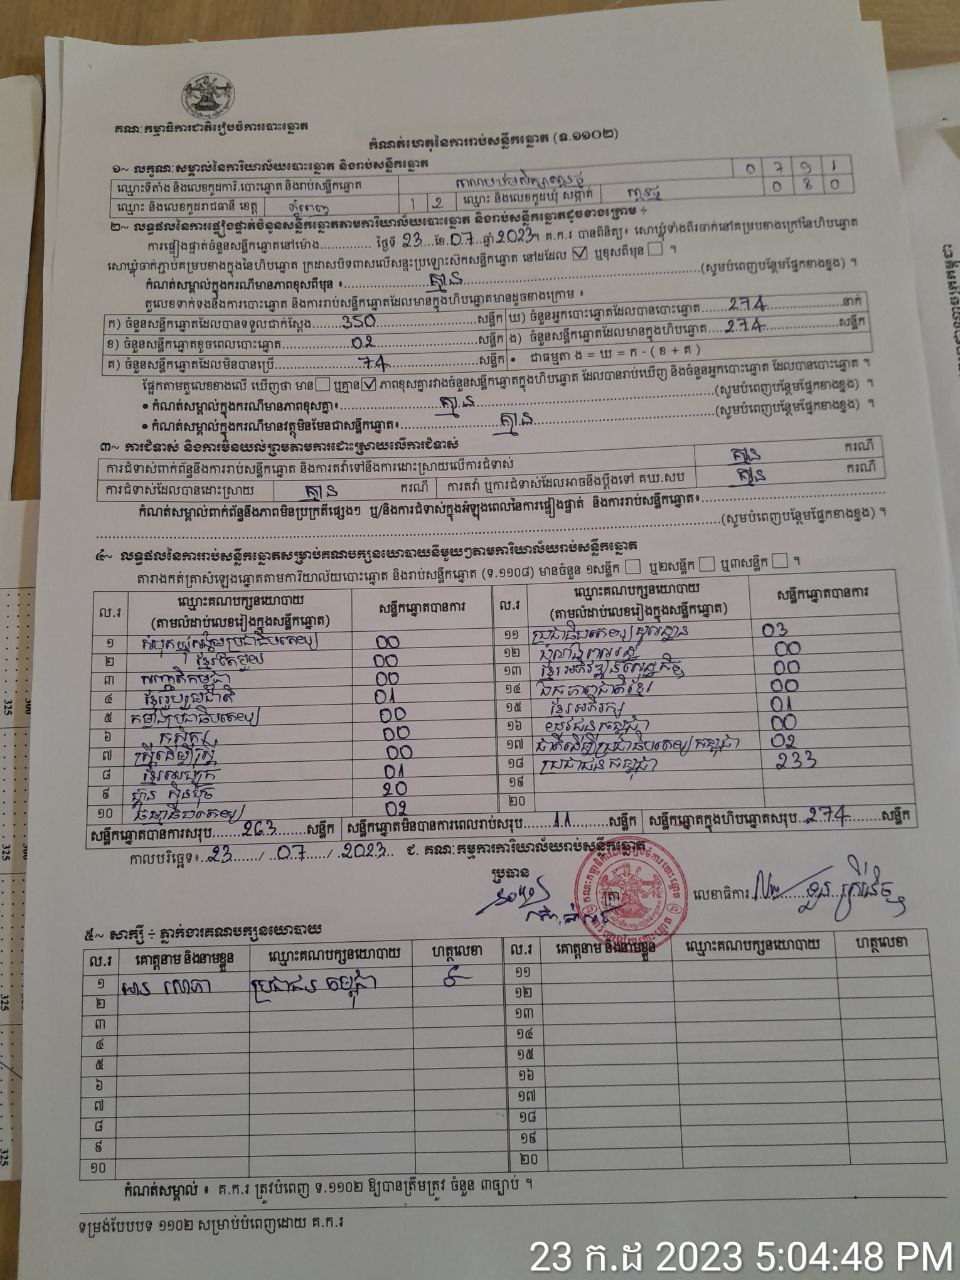 គណៈកម្មាធិការជាតិរៀបចំការបោះឆ្នោត
កំណត់ហេតុនៃការរាប់សន្លឹកឆ្នោត (ទ.១១០២)
១~ លក្ខណៈសម្គាល់នៃការិយាល័យបោះឆ្នោត និងរាប់សន្លឹកឆ្នោត
ឈ្មោះទីតាំង និងលេខកូដការិ.បោះឆ្នោត និងរាប់សន្លឹកឆ្នោត 0 7 9 1
ឈ្មោះ និងលេខកូដរាជធានី ខេត្ត ភ្នំពេញ 1 2 ឈ្មោះ និងលេខកូដឃុំ សង្កាត់ 0 8 0
២~ លទ្ធផលនៃការផ្ទៀងផ្ទាត់ចំនួនសន្លឹកឆ្នោតតាមការិយាល័យបោះឆ្នោត និងរាប់សន្លឹកឆ្នោតដូចខាងក្រោម ÷
ការផ្ទៀងផ្ទាត់ចំនួនសន្លឹកឆ្នោតនៅម៉ោង.............. ថ្ងៃទី 23 .ខែ.07.ឆ្នាំ 2023។ គ.ក.រ បានពិនិត្យ៖ សោឃ្លុំទាំងពីរចាក់នៅគម្របខាងក្រៅនៃហិបឆ្នោត
សោឃ្លុំចាក់ភ្ជាប់គម្របខាងក្នុងនៃហិបឆ្នោត ក្រដាសបិទពាសលើសន្ទះប្រឡោះសឹកសន្លឹកឆ្នោត នៅដដែល ☑ ឬខុសពីមុន ☐ ។
កំណត់សម្គាល់ក្នុងករណីមានភាពខុសពីមុន ៖ គ្មាន (សូមបំពេញបន្ថែមផ្នែកខាងខ្នង) ។
តួលេខទាក់ទងនឹងការបោះឆ្នោត និងការរាប់សន្លឹកឆ្នោតដែលមានក្នុងហិបឆ្នោតមានដូចខាងក្រោម ៖
ក) ចំនួនសន្លឹកឆ្នោតដែលបានទទួលជាក់ស្ដែង 350 សន្លឹក ឃ) ចំនួនអ្នកបោះឆ្នោតដែលបានបោះឆ្នោត 274 នាក់
ខ) ចំនួនសន្លឹកឆ្នោតខូចពេលបោះឆ្នោត 02 សន្លឹក ង) ចំនួនសន្លឹកឆ្នោតដែលមានក្នុងហិបឆ្នោត 274 សន្លឹក
គ) ចំនួនសន្លឹកឆ្នោតដែលមិនបានប្រើ 74 សន្លឹក • ជាធម្មតា ង = ឃ = ក - ( ខ + គ )
ផ្អែកតាមតួលេខខាងលើ ឃើញថា មាន ☐ ឬគ្មាន ☑ ភាពខុសគ្នារវាងចំនួនសន្លឹកឆ្នោតក្នុងហិបឆ្នោត ដែលបានរាប់ឃើញ និងចំនួនអ្នកបោះឆ្នោត ដែលបានបោះឆ្នោត ។
• កំណត់សម្គាល់ក្នុងករណីមានភាពខុសគ្នា៖ គ្មាន (សូមបំពេញបន្ថែមផ្នែកខាងខ្នង) ។
• កំណត់សម្គាល់ក្នុងករណីមានវត្ថុមិនមែនជាសន្លឹកឆ្នោត៖ គ្មាន (សូមបំពេញបន្ថែមផ្នែកខាងខ្នង) ។
៣~ ការជំទាស់ និងការមិនយល់ព្រមតាមការដោះស្រាយលើការជំទាស់
ការជំទាស់ពាក់ព័ន្ធនឹងការរាប់សន្លឹកឆ្នោត និងការតវ៉ាទៅនឹងការដោះស្រាយលើការជំទាស់ គ្មាន ករណី
ការជំទាស់ដែលបានដោះស្រាយ គ្មាន ករណី ការតវ៉ា ឬការជំទាស់ដែលអាចនឹងប្ដឹងទៅ គឃ.សប គ្មាន ករណី
កំណត់សម្គាល់ពាក់ព័ន្ធនឹងភាពមិនប្រក្រតីផ្សេងៗ ឬ/និងការជំទាស់ក្នុងអំឡុងពេលនៃការផ្ទៀងផ្ទាត់ និងការរាប់សន្លឹកឆ្នោត៖
(សូមបំពេញបន្ថែមផ្នែកខាងខ្នង) ។
៤~ លទ្ធផលនៃការរាប់សន្លឹកឆ្នោតសម្រាប់គណបក្សនយោបាយនីមួយៗតាមការិយាល័យរាប់សន្លឹកឆ្នោត
តារាងកត់ត្រាសំឡេងឆ្នោតតាមការិយាល័យបោះឆ្នោត និងរាប់សន្លឹកឆ្នោត (ទ.១១០៨) មានចំនួន ១សន្លឹក ☐ ឬ២សន្លឹក ☐ ឬ៣សន្លឹក ☐ ។
ល.រ ឈ្មោះគណបក្សនយោបាយ (តាមលំដាប់លេខរៀងក្នុងសន្លឹកឆ្នោត) សន្លឹកឆ្នោតបានការ ល.រ ឈ្មោះគណបក្សនយោបាយ (តាមលំដាប់លេខរៀងក្នុងសន្លឹកឆ្នោត) សន្លឹកឆ្នោតបានការ
១ សំបុកឃ្មុំសង្គមប្រជាធិបតេយ្យ 00 ១១ 03
២ ខ្មែរតែមួយ 00 ១២ 00
៣ កម្ពុជា 00 ១៣ 00
៤ ខ្មែររួបរួមជាតិ 01 ១៤ ឯកភាពជាតិខ្មែរ 00
៥ កម្លាំងប្រជាធិបតេយ្យ 00 ១៥ ខ្មែរអភិរក្ស 01
៦ កសិករ 00 ១៦ យុវជនកម្ពុជា 00
៧ ស្ត្រីដើម្បីស្ត្រី 00 ១៧ ជាតិដើម្បីប្រជាធិបតេយ្យកម្ពុជា 02
៨ 01 ១៨ ប្រជាជនកម្ពុជា 233
៩ ហ្វ៊ុនស៊ិនប៉ិច 20 ១៩
១០ ធម្មាធិបតេយ្យ 02 20
សន្លឹកឆ្នោតបានការសរុប 263 សន្លឹក សន្លឹកឆ្នោតមិនបានការពេលរាប់សរុប 11 សន្លឹក សន្លឹកឆ្នោតក្នុងហិបឆ្នោតសរុប 274 សន្លឹក
កាលបរិច្ឆេទ៖ 23 / 07 / 2023 ជ. គណៈកម្មការការិយាល័យរាប់សន្លឹកឆ្នោត
ប្រធាន ត្រា លេខាធិការ
៥~ សាក្សី ÷ ភ្នាក់ងារគណបក្សនយោបាយ
ល.រ គោត្តនាម និងនាមខ្លួន ឈ្មោះគណបក្សនយោបាយ ហត្ថលេខា ល.រ គោត្តនាម និងនាមខ្លួន ឈ្មោះគណបក្សនយោបាយ ហត្ថលេខា
១ ប្រជាជនកម្ពុជា ១១
២ ១២
៣ ១៣
៤ ១៤
៥ ១៥
៦ ១៦
៧ ១៧
៨ ១៨
៩ ១៩
១០ 20
កំណត់សម្គាល់ ៖ គ.ក.រ ត្រូវបំពេញ ទ.១១០២ ឱ្យបានត្រឹមត្រូវ ចំនួន ៣ច្បាប់ ។
ទម្រង់បែបបទ ១១០២ សម្រាប់បំពេញដោយ គ.ក.រ
23 ក.ដ 2023 5:04:48 PM